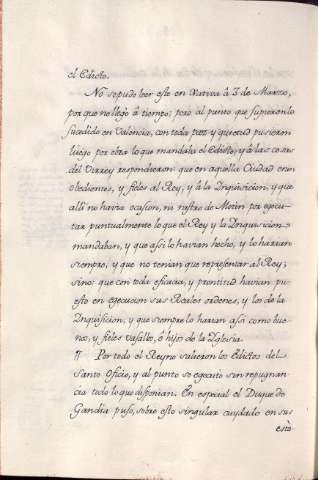 el Edicto.
No se pudo leer este en Xativa â 3 de Marzo,
por que no llegó â tiempo; pero al punto que supieron lo
sucedido en Valencia, con toda paz y quietud pusieron
luego por obra lo que mandaba el Edicto; y â las cartas
del Virrey respondieron que en aquella Ciudad eran
obedientes, y fieles al Rey, y â la Inquisicion, y que
alli no havia ocasion, ni rastro de Motin por execu-
tar puntualmente lo que el Rey y la Inquisicion
mandaban, y que assi lo havian hecho, y lo harian
siempre, y que no tenian que representar al Rey;
sino que con toda eficacia, y prontitud havian pu-
esto en egecucion sus Reales ordenes, y los de la
Inquisicion, y que siempre lo harian assi como bue-
nos, y fieles vasallos, ê hijos de la Iglesia.
7 Por todo el Reyno salieron los Edictos del
Santo Oficio, y al punto se egecutó sin repugnan-
cia todo lo que disponian. En especial el Duque de
Gandia puso, sobre esto singular cuydado en sus
esta